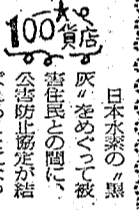 100貨店
日本水素の〝黒
灰〟をめぐって被
害住民との間に、
公害防止協定が結